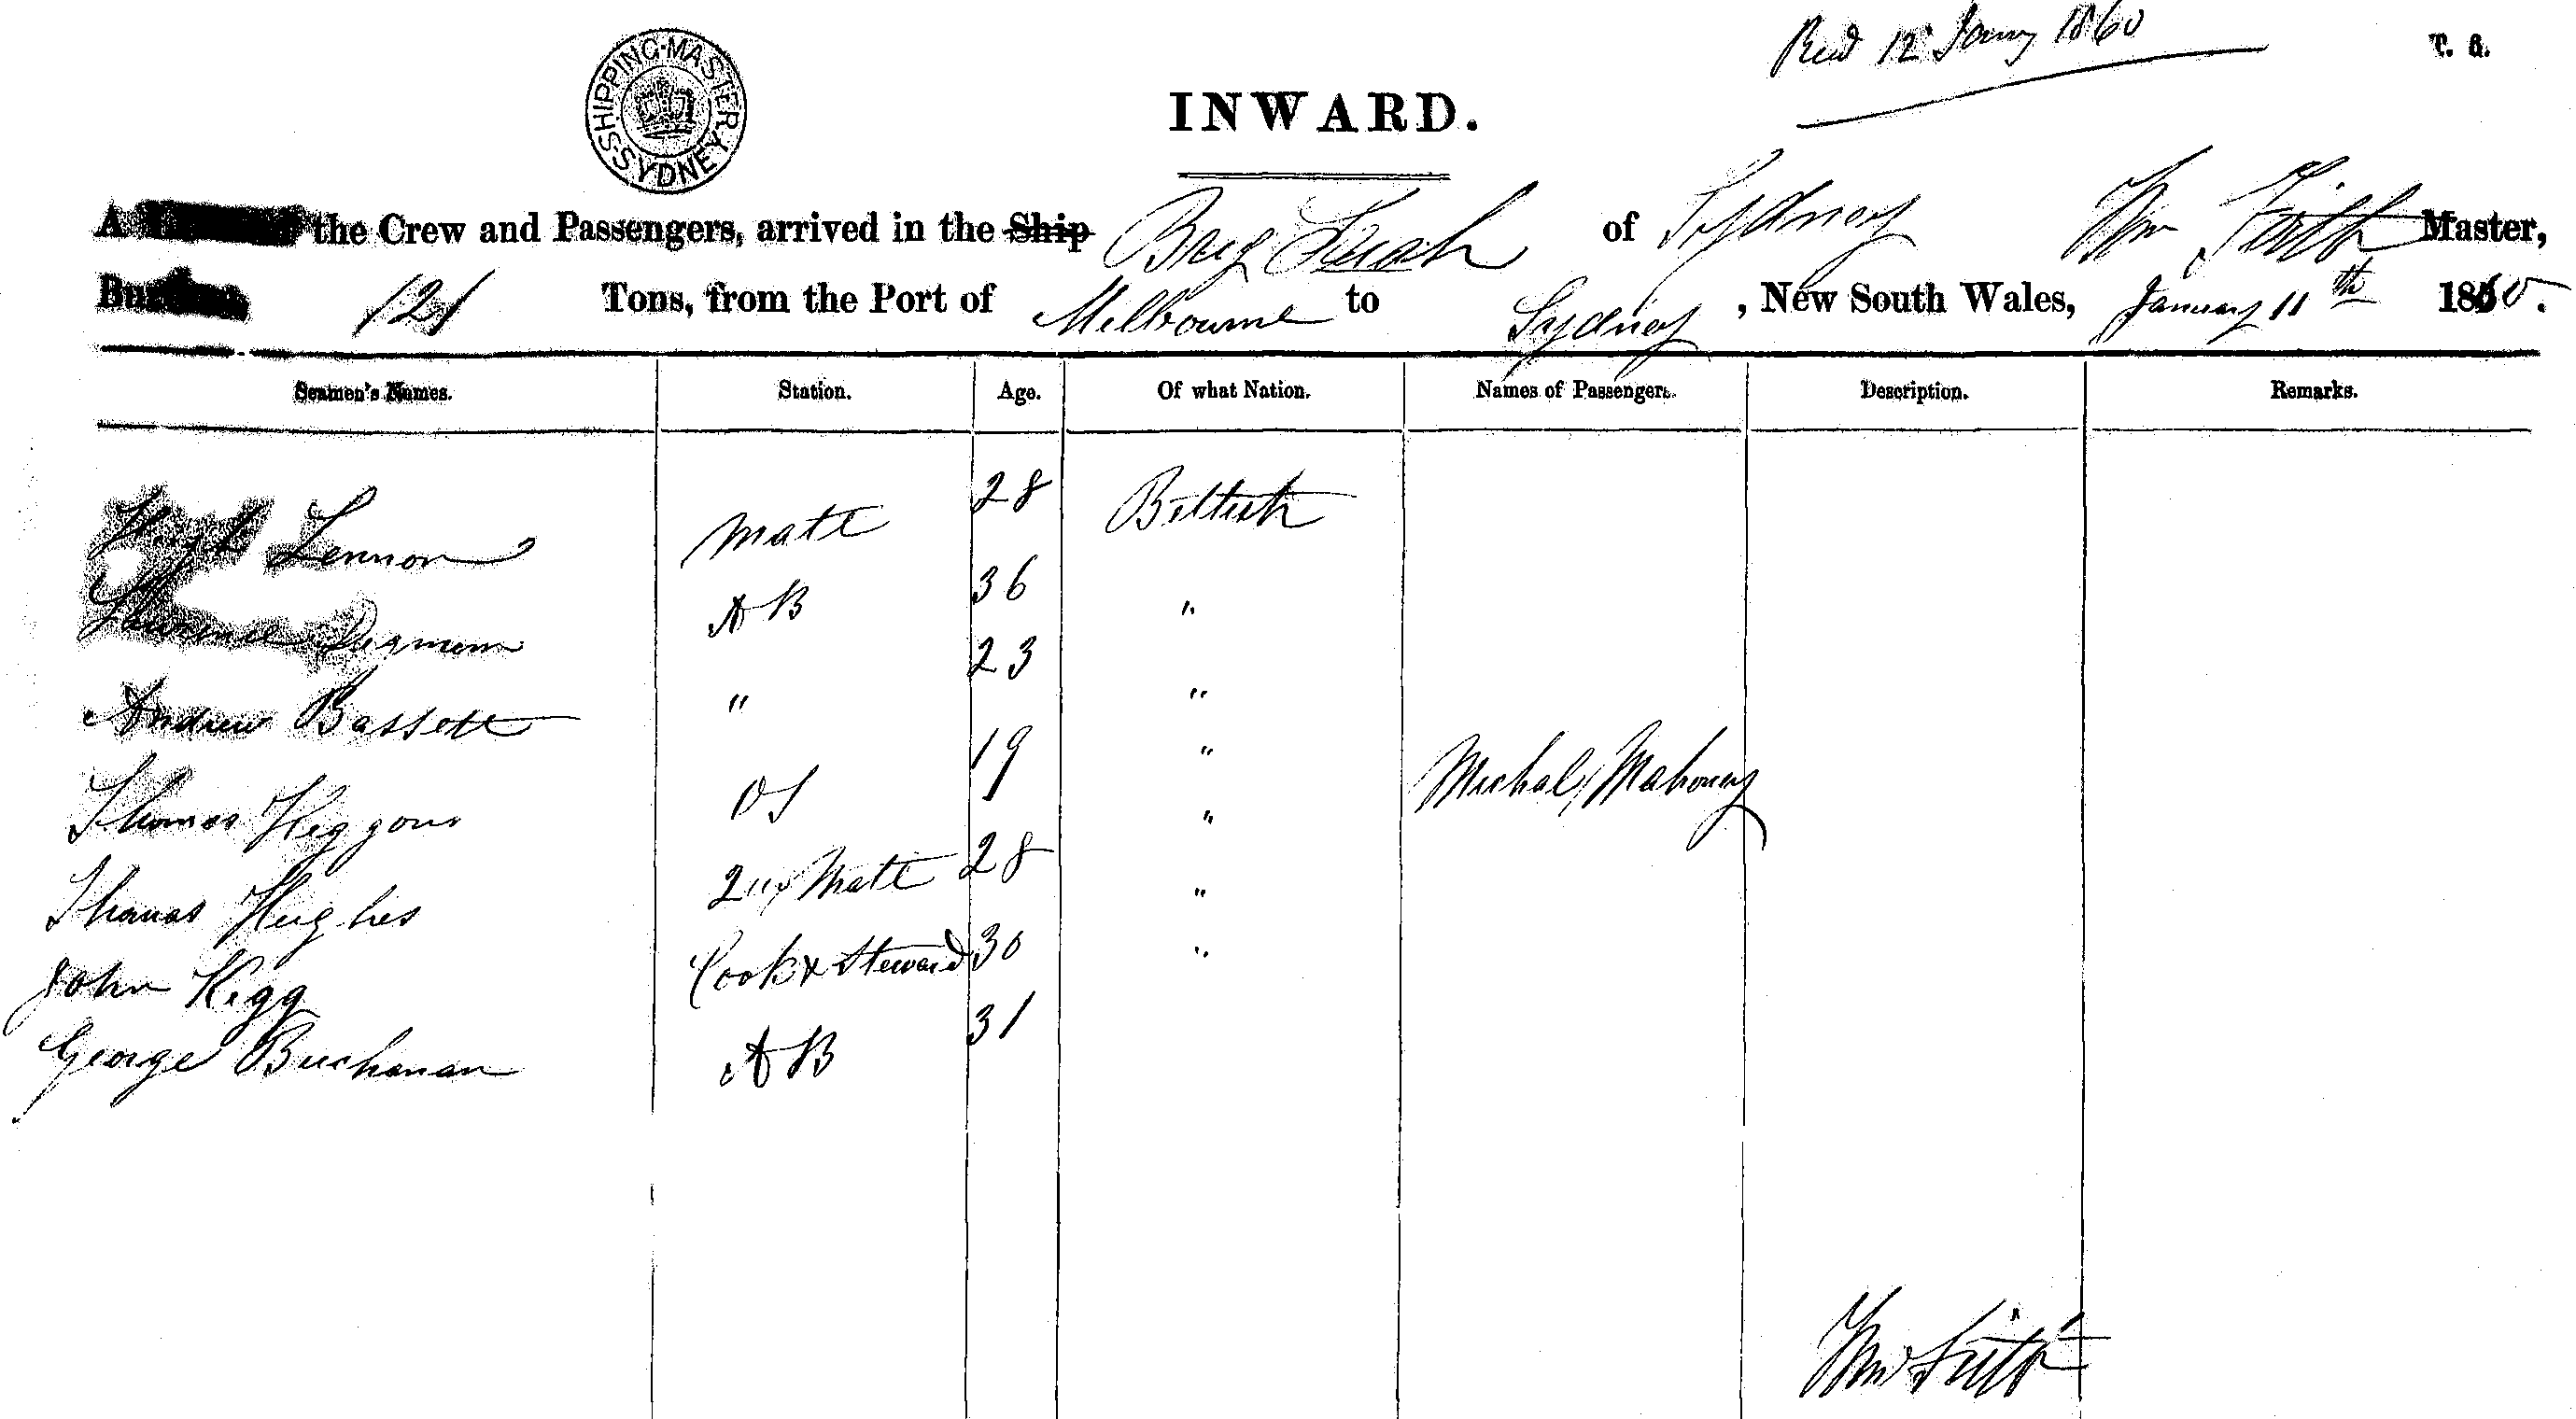 Recd 12 Jany 1860
T. S.
SHIPPING MASTER SYDNEY
INWARD.
A the Crew and Passengers, arrived in the Ship Brig of Sydney Wm Firth Master,
Burthen 121 Tons, from the Port of Melbourne to Sydney, New South Wales, January 11th 1860.
Seamen's Names. Station. Age. Of what Nation. Names of Passengers. Description. Remarks.
Hugh Lennon Mate 28 British
Lawrence A B 36 "
Andrew Bassett " 23 "
Thomas Higgons O S 19 " Michal Mahoney
Thomas Hughes 2nd Mate 28 "
John Kegg Cook & Steward 30 "
George Buchanan A B 31 "
Wm Firth